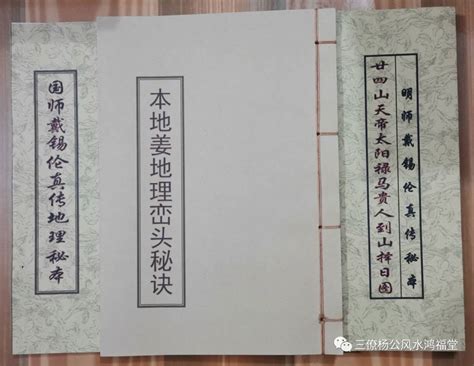 国师戴锡伦真传地理秘本
本地姜地理峦头秘诀
明师戴锡伦真传秘本
廿四山天帝太阳禄马贵人到山择日图
三僚杨公风水鸿福堂